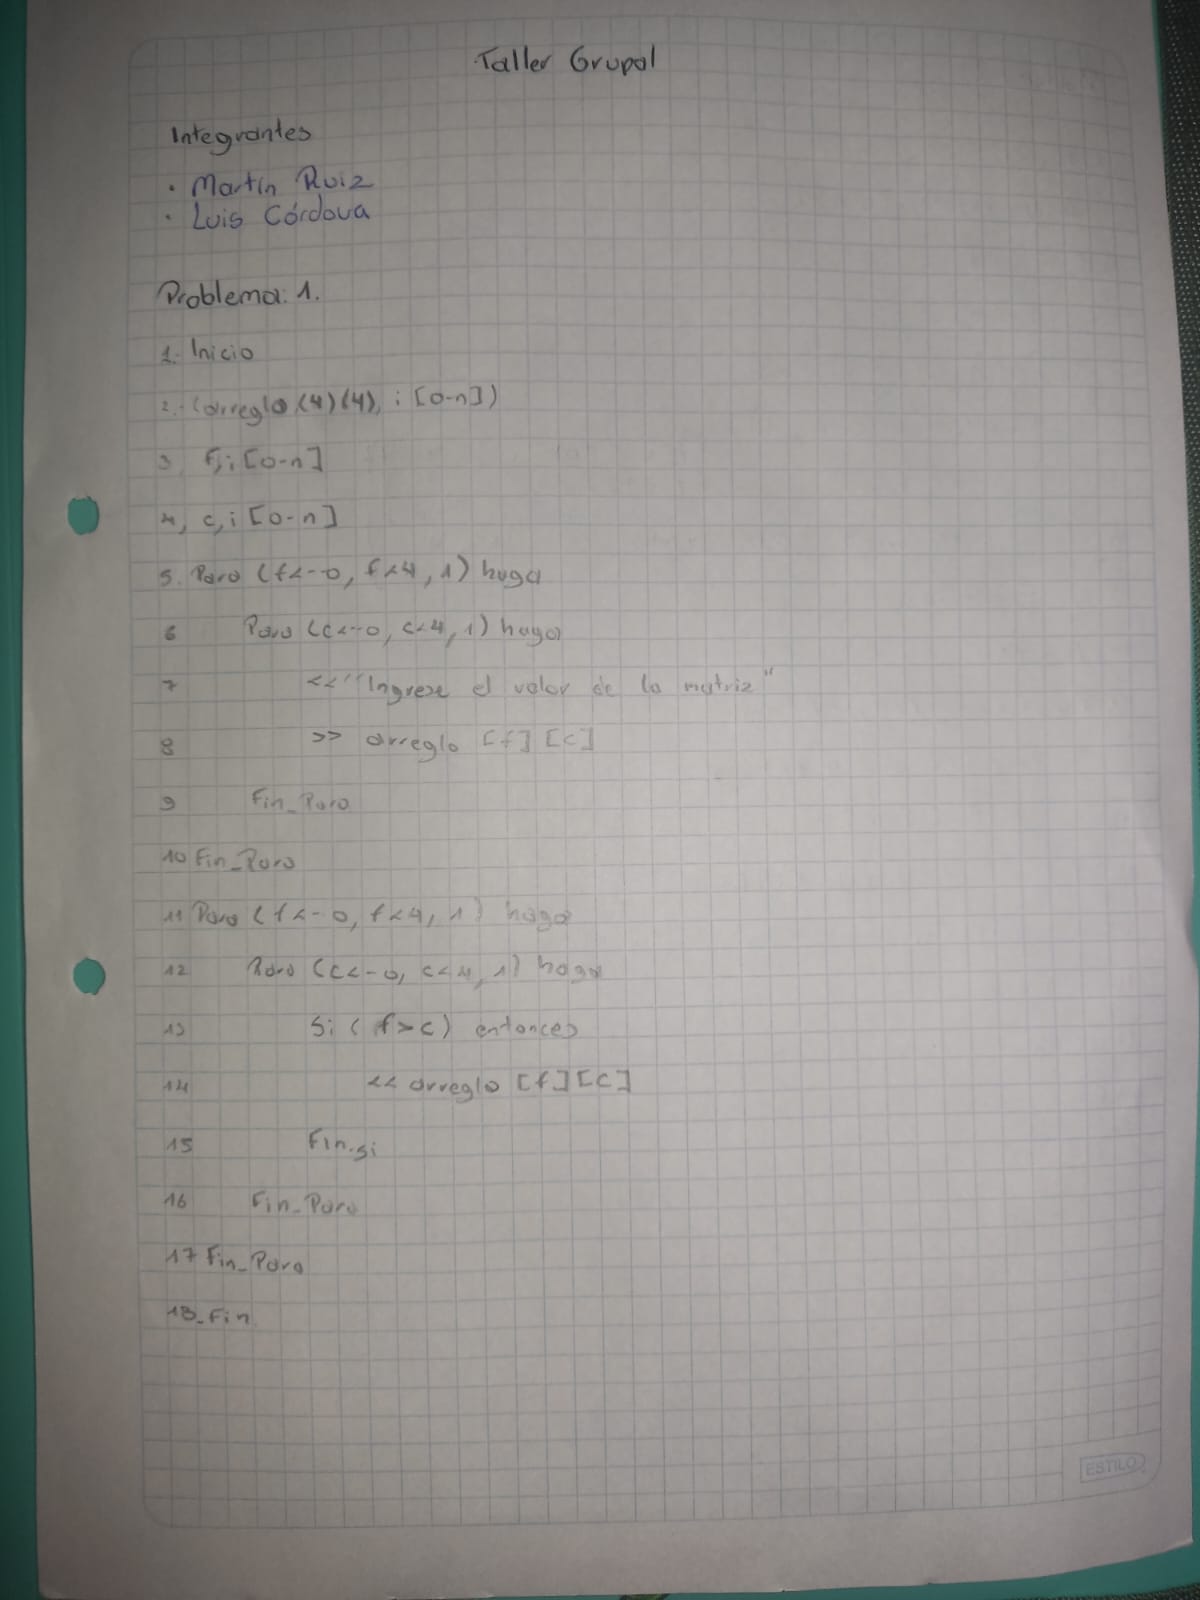 Taller Grupal
Integrantes
· Martín Ruiz
· Luis Córdova
Problema: 1.
1. Inicio
2.- (arreglo (4)(4), i [0-n])
3. f,i [0-n]
4, c,i [0-n]
5. Para (f<-0, f<4, 1) haga
6 Para (c<-0, c<4, 1) haga
7 <<"Ingrese el valor de la matriz"
8 >> arreglo [f] [c]
9 Fin_Para
10 Fin_Para
11 Para (f<-0, f<4, 1) haga
12 Para (c<-0, c<4, 1) haga
13 Si (f>c) entonces
14 << arreglo [f][c]
15 Fin_si
16 Fin_Para
17 Fin_Para
18_Fin
ESTILO